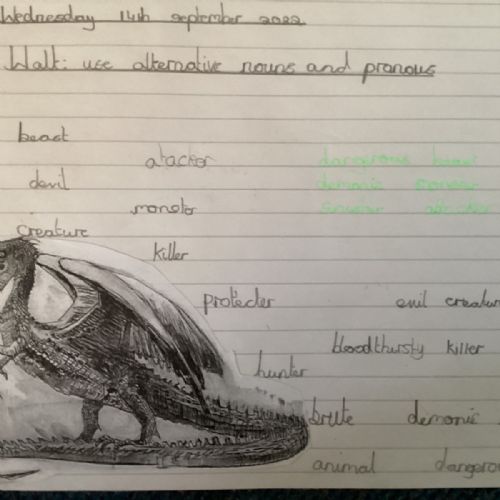 Wednesday 14th september 2022
Walt: use alternative nouns and pronous
beast
atacker dangerous
devil demonic
monster
creature
killer
protecter evil creatur
bloodthursty killer
hunter
brute demonic
animal dangero